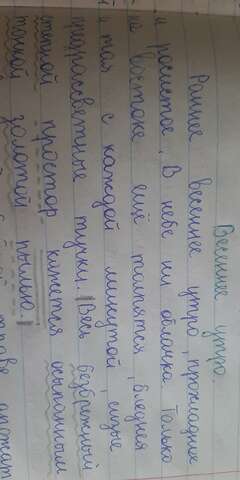 Весеннее утро.
Раннее весеннее утро, прохладное
и росистое. В небе ни облачка. Только
на востоке ещё толпятся, бледнея
и тая с каждой минутой, сизые
предрассветные тучки. Весь безбрежный
степной простор кажется осыпанным
тонкой золотой пылью.
траве дрожат